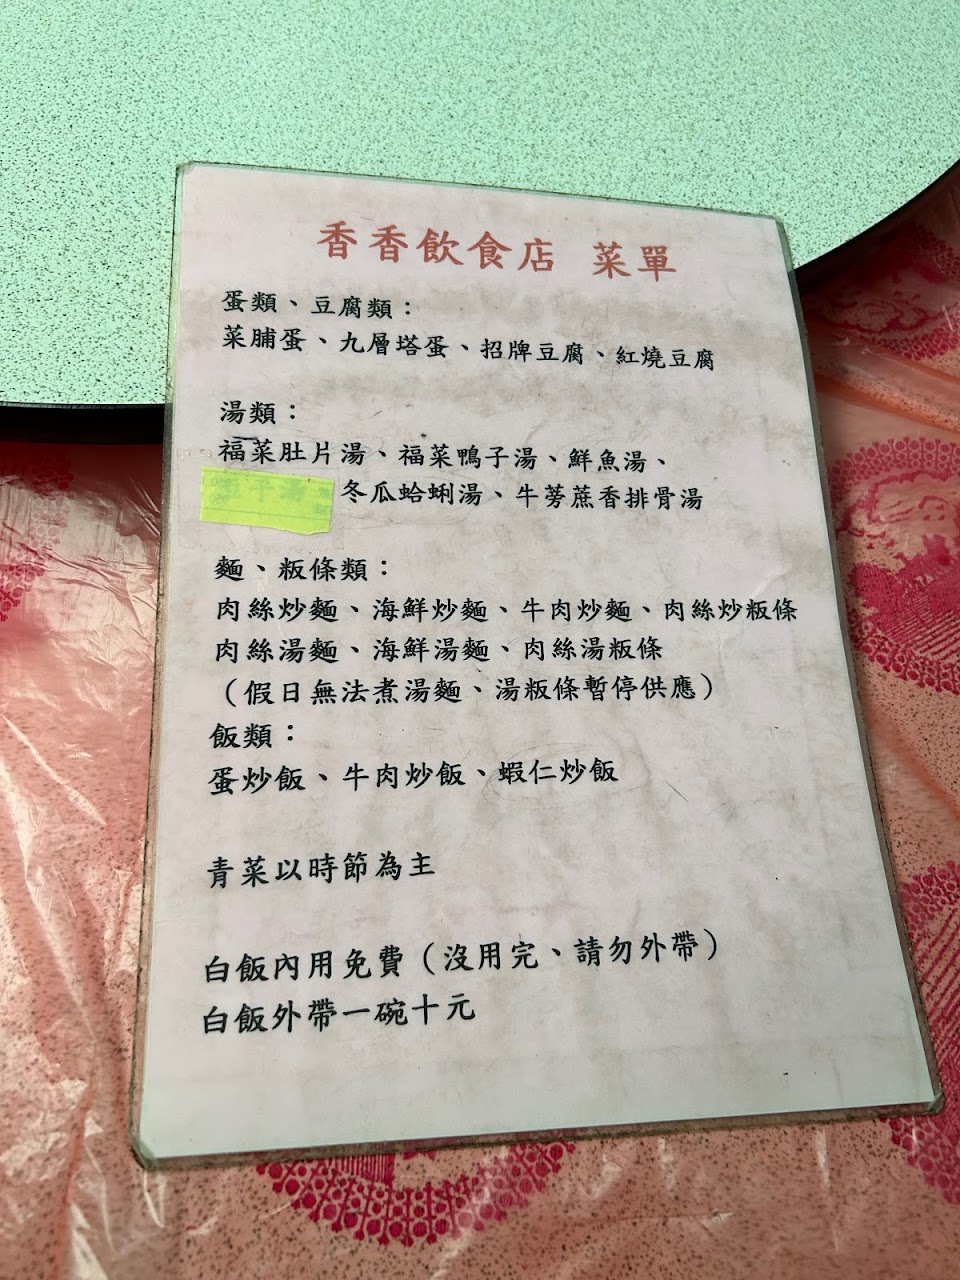 香香飲食店 菜單
蛋類、豆腐類：
菜脯蛋、九層塔蛋、招牌豆腐、紅燒豆腐
湯類：
福菜肚片湯、福菜鴨子湯、鮮魚湯、
冬瓜蛤蜊湯、牛蒡蔗香排骨湯
麵、粄條類：
肉絲炒麵、海鮮炒麵、牛肉炒麵、肉絲炒粄條
肉絲湯麵、海鮮湯麵、肉絲湯粄條
（假日無法煮湯麵、湯粄條暫停供應）
飯類：
蛋炒飯、牛肉炒飯、蝦仁炒飯
青菜以時節為主
白飯內用免費（沒用完、請勿外帶）
白飯外帶一碗十元